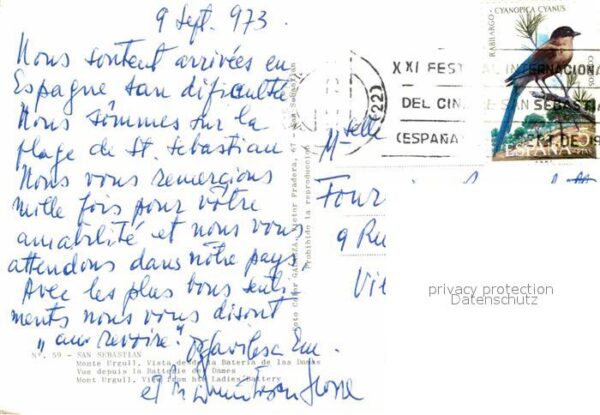 9 Sept. 973.
Nous sontent arrivées en
Espagne san dificulté
Nous sommes sur la
plage de St. Sebastian
Nous vous remergions
mille fois pour vôtre
amabilité et nous vous
attendons dans nôtre pays
Avec les plus bons senti-
ments nous vous disont
„au revoire".
et
Nº. 59 - SAN SEBASTIAN
Monte Urgull, Vista desde la Batería de las Damas
Vue depuis la Batterie des Dames
Mont Urgull, View from his Ladies Battery
Foto César GARANZA, Víctor Pradera, 47 - San Sebastian
Prohibido la reproducción
(22)
XXI FESTIVAL INTERNACIONAL
DEL CINE DE SAN SEBASTIAN
(ESPAÑA)
RABILARGO - CYANOPICA CYANUS
CORREOS
ESPAÑA 5 PTAS
Mselle
Four
9 Ru
Vi
privacy protection
Datenschutz